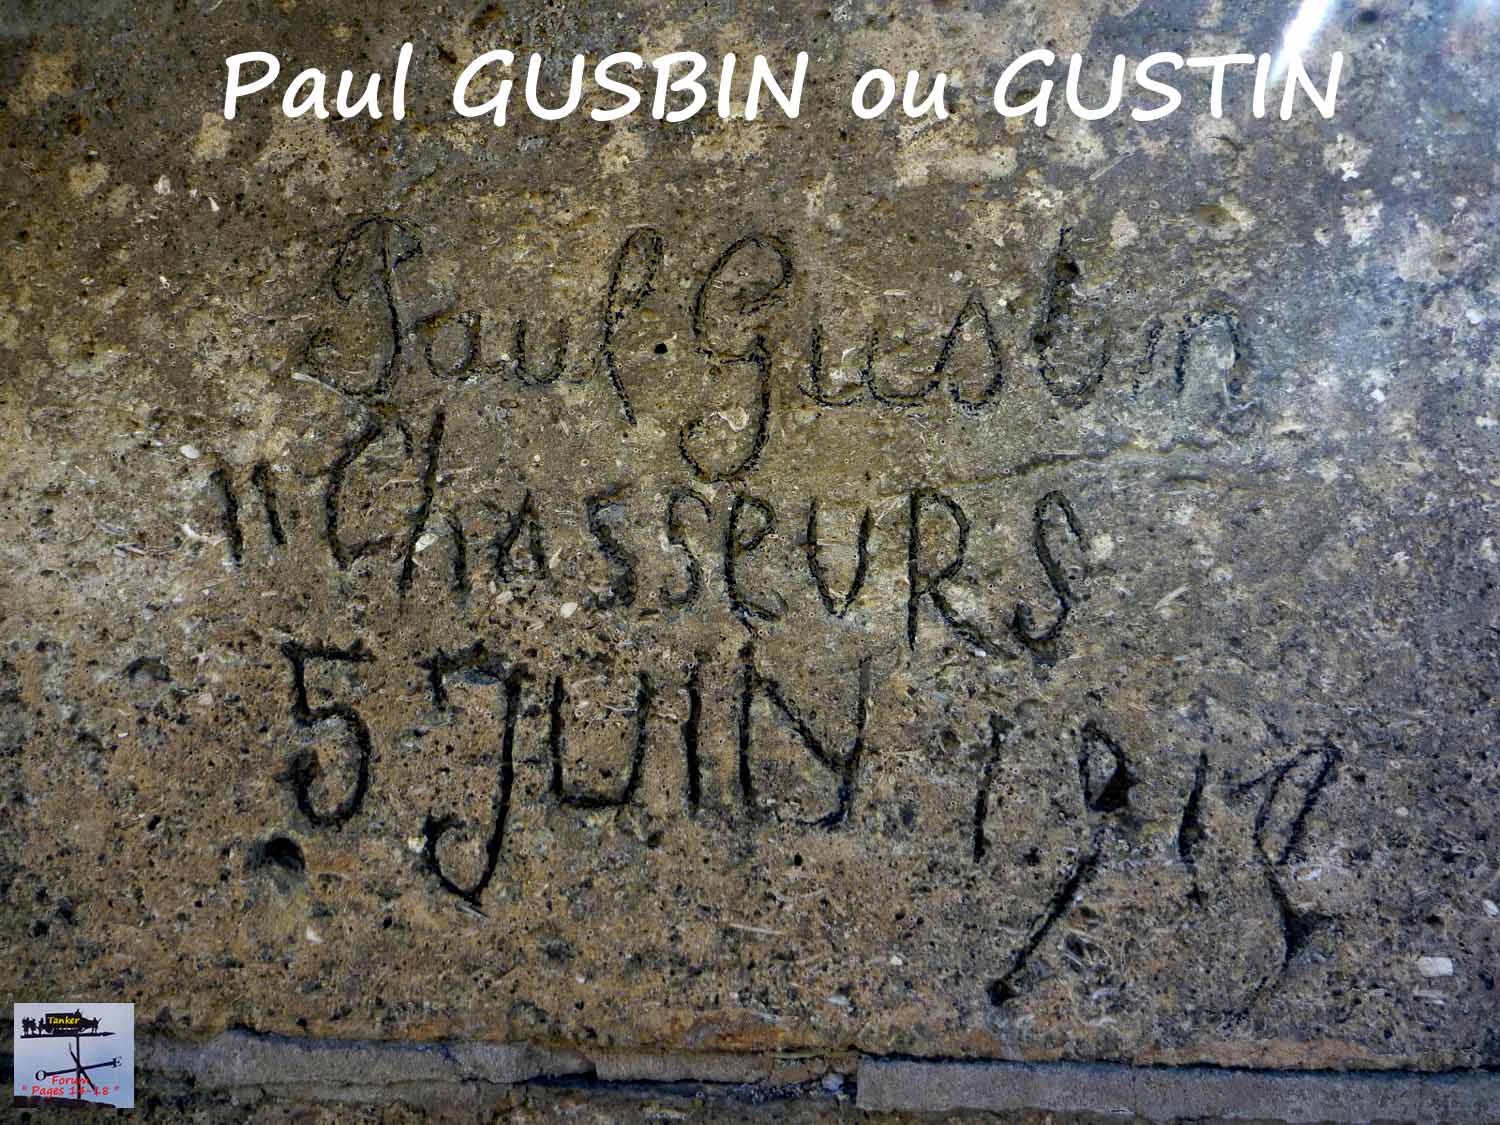 Paul GUSBIN ou GUSTIN
Paul Gustin
11 Chasseurs
5 JUIN 1918
Tanker
E
O
Forum
" Pages 14-18 "